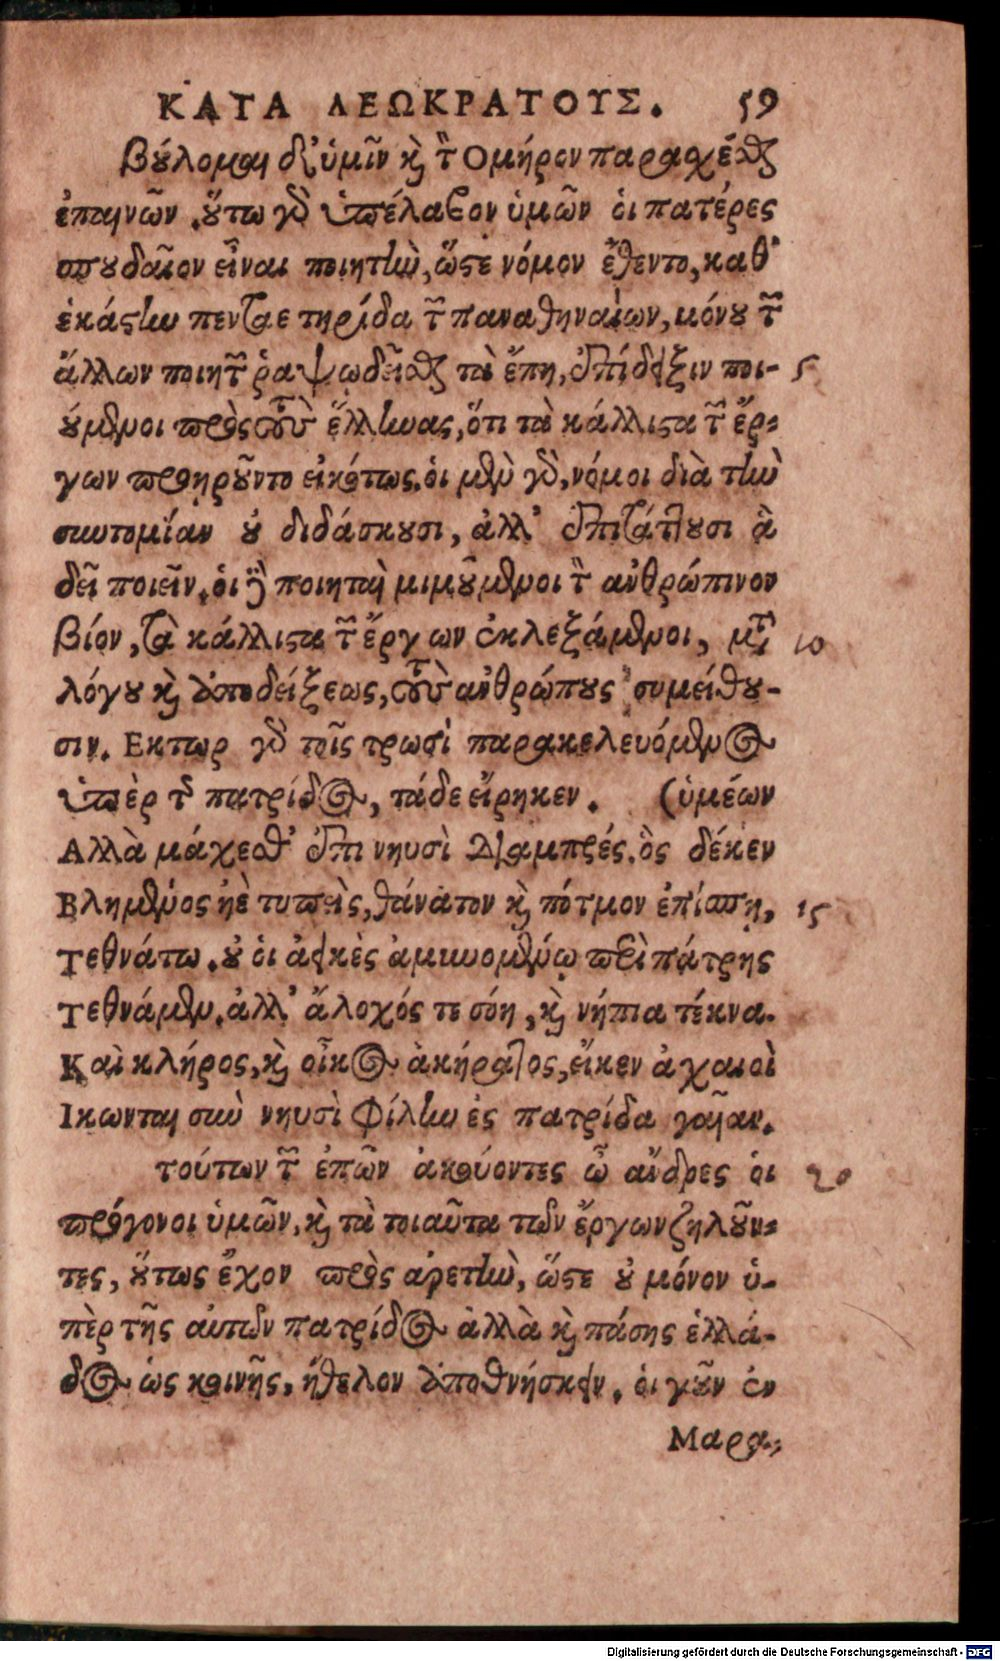 ΚΑΤΑ ΛΕΩΚΡΑΤΟΥΣ. 59
βούλομαι δ' ὑμῖν καὶ τὸν Ομήρον παρασχέσθαι
ἐπαινῶν. οὕτω γὰρ ὑπέλαβον ὑμῶν οἱ πατέρες
σπουδαῖον εἶναι ποιητὴν, ὥστε νόμον ἔθεντο, καθ'
ἑκάστην πενταετηρίδα τῶν παναθηναίων, μόνου τῶν
ἄλλων ποιητῶν ῥαψωδεῖσθαι τὰ ἔπη, ἐπίδειξιν ποι- 5
ούμενοι πρὸς τοὺς ἕλληνας, ὅτι τὰ κάλλιστα τῶν ἔρ-
γων προηροῦντο εἰκότως. οἱ μὲν γὰρ, νόμοι διὰ τὴν
συντομίαν οὐ διδάσκουσι, ἀλλ' ἐπιτάττουσι ἃ
δεῖ ποιεῖν. οἱ δὲ ποιηταὶ μιμούμενοι τὸν ἀνθρώπινον
βίον, τὰ κάλλιστα τῶν ἔργων ἐκλεξάμενοι, μετὰ 10
λόγου καὶ ἀποδείξεως, τοὺς ἀνθρώπους συμπείθου-
σιν. Εκτωρ γὰρ τοῖς τρωσὶ παρακελευόμενος
ὑπὲρ τῆς πατρίδος, τάδε εἴρηκεν. (ὑμέων
Αλλὰ μάχεσθ' ἐπὶ νηυσὶ διαμπρές. ὃς δέκεν
Βλημένος ἠὲ τυπεὶς, θάνατον καὶ πότμον ἐπίσπῃ, 15
Τεθνάτω. οὐ οἱ ἀεικὲς ἀμυνομένῳ περὶ πάτρης
Τεθνάμεν. ἀλλ' ἄλοχός τε σόη, καὶ νήπια τέκνα.
Καὶ κλῆρος, καὶ οἶκος ἀκήρατος, εἴκεν ἀχαιοὶ
Ικωνται σὺν νηυσὶ φίλην ἐς πατρίδα γαῖαν.
τούτων τῶν ἐπῶν ἀκούοντες ὦ ἄνδρες οἱ 20
πρόγονοι ὑμῶν, καὶ τὰ τοιαῦτα τῶν ἔργων ζηλοῦν-
τες, οὕτως ἔχον πρὸς ἀρετὴν, ὥστε οὐ μόνον ὑ-
πὲρ τῆς αὐτῶν πατρίδος ἀλλὰ καὶ πάσης ἑλλά-
δος ὡς κοινῆς, ἤθελον ἀποθνήσκειν. οἱ γοῦν ἐν
Μαρα-
Digitalisierung gefördert durch die Deutsche Forschungsgemeinschaft - DFG